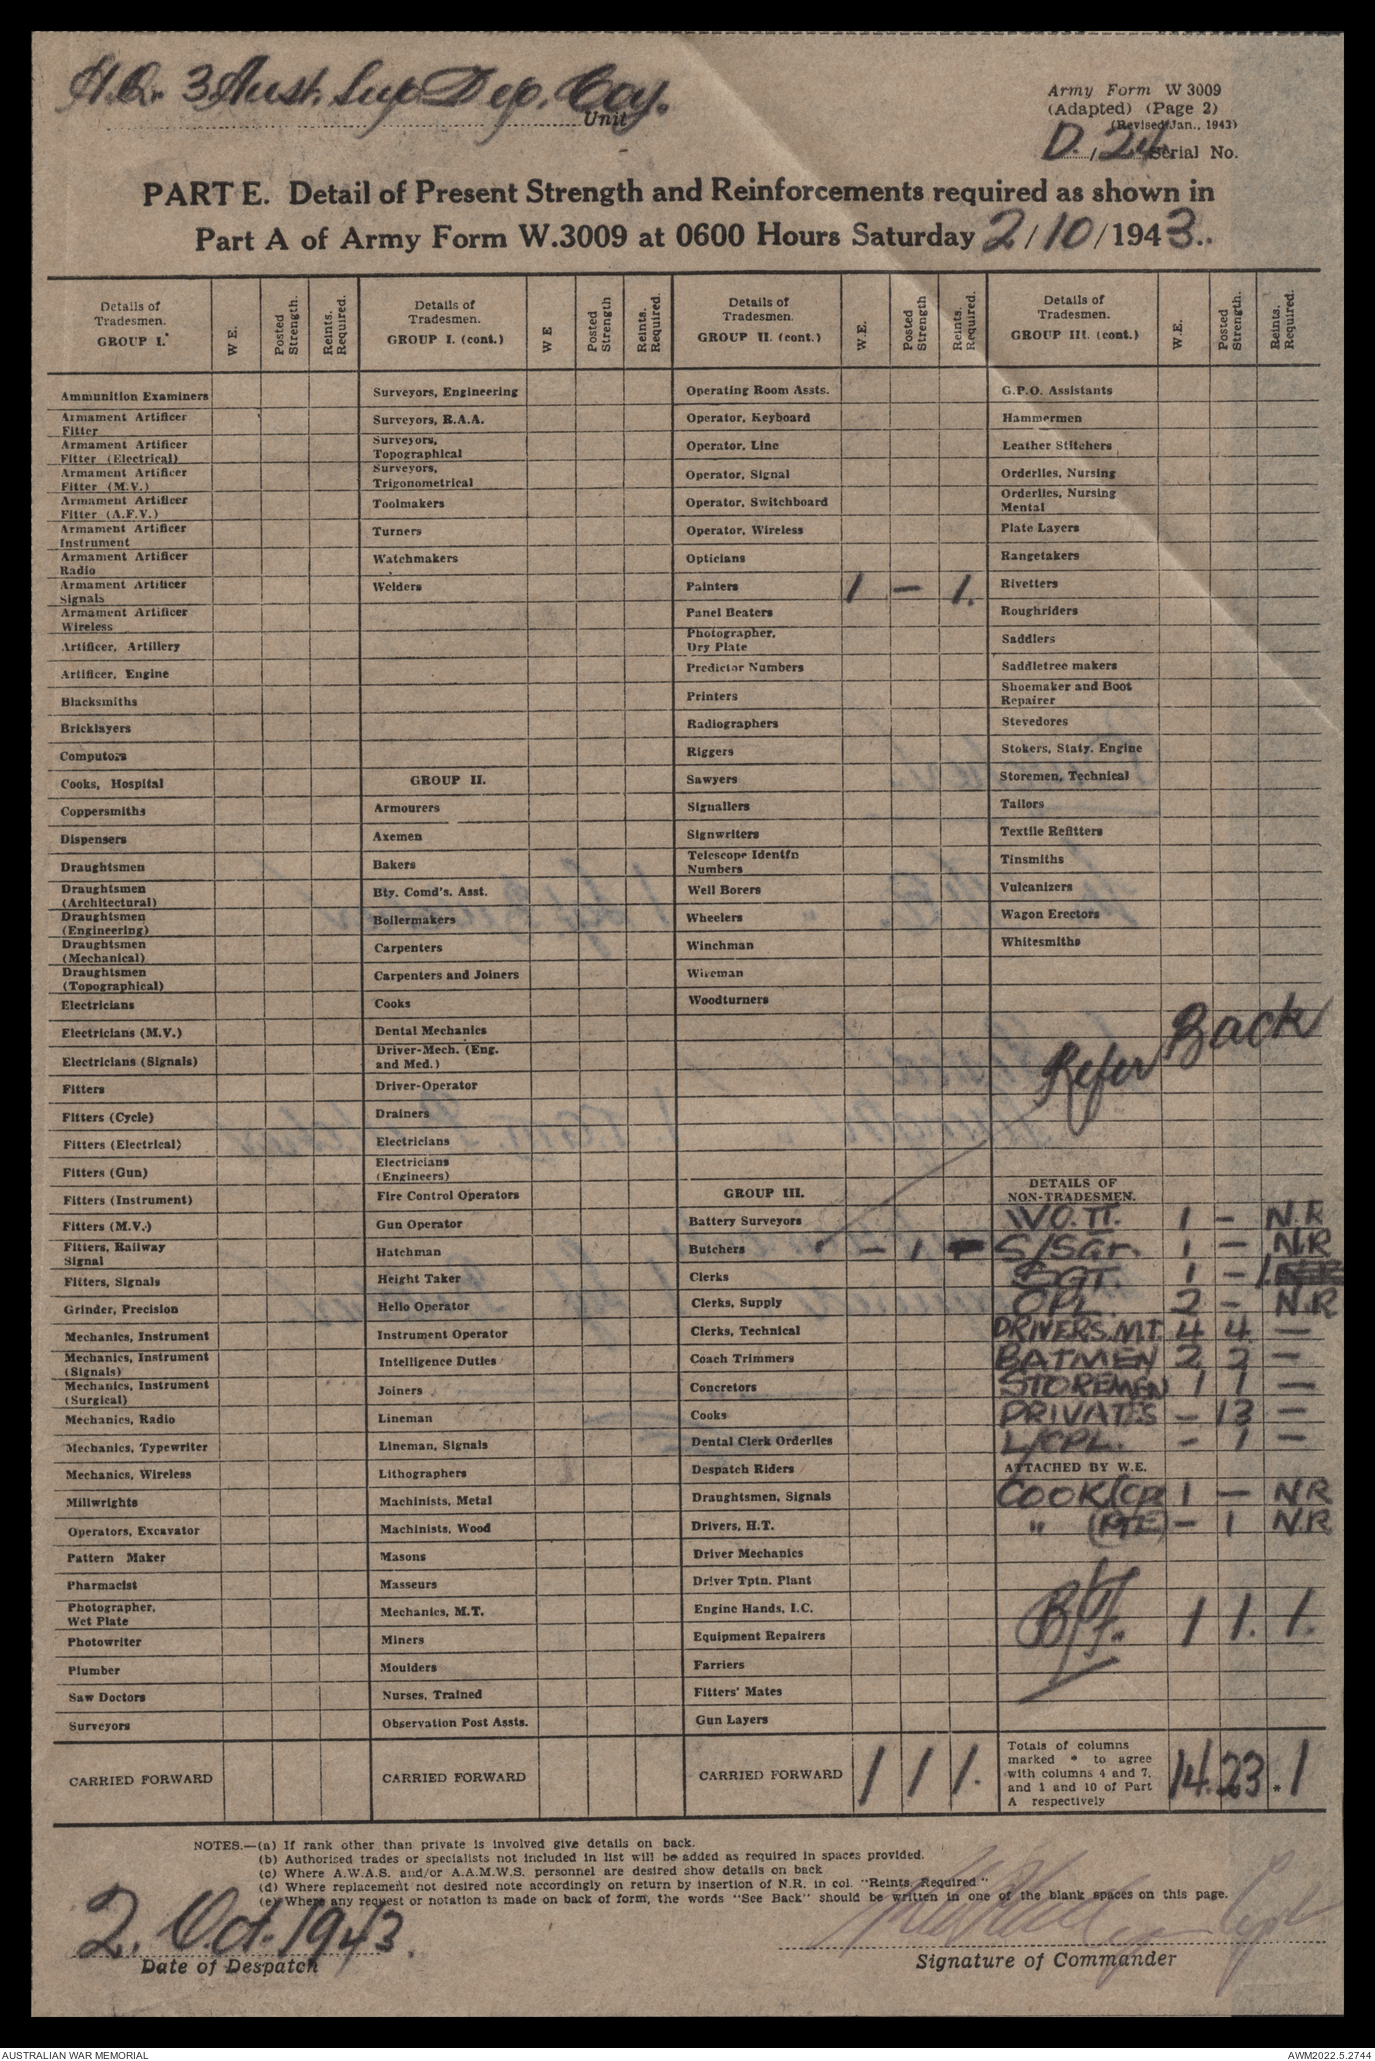 H.Q. 3 Aust. Sup. Dep. Coy.
Unit
Army Form W 3009
(Adapted) (Page 2)
(Revised Jan., 1943)
D. / 24 Serial No.
PART E. Detail of Present Strength and Reinforcements required as shown in
Part A of Army Form W.3009 at 0600 Hours Saturday 2/10/1943..
Details of Tradesmen. GROUP I.* W E. Posted Strength. Reints. Required.
Ammunition Examiners
Armament Artificer
Fitter
Armament Artificer
Fitter (Electrical)
Armament Artificer
Fitter (M.V.)
Armament Artificer
Fitter (A.F.V.)
Armament Artificer
Instrument
Armament Artificer
Radio
Armament Artificer
Signals
Armament Artificer
Wireless
Artificer, Artillery
Artificer, Engine
Blacksmiths
Bricklayers
Computors
Cooks, Hospital
Coppersmiths
Dispensers
Draughtsmen
Draughtsmen
(Architectural)
Draughtsmen
(Engineering)
Draughtsmen
(Mechanical)
Draughtsmen
(Topographical)
Electricians
Electricians (M.V.)
Electricians (Signals)
Fitters
Fitters (Cycle)
Fitters (Electrical)
Fitters (Gun)
Fitters (Instrument)
Fitters (M.V.)
Fitters, Railway
Signal
Fitters, Signals
Grinder, Precision
Mechanics, Instrument
Mechanics, Instrument
(Signals)
Mechanics, Instrument
(Surgical)
Mechanics, Radio
Mechanics, Typewriter
Mechanics, Wireless
Millwrights
Operators, Excavator
Pattern Maker
Pharmacist
Photographer,
Wet Plate
Photowriter
Plumber
Saw Doctors
Surveyors
CARRIED FORWARD
Details of Tradesmen. GROUP I. (cont.) W E Posted Strength Reints. Required.
Surveyors, Engineering
Surveyors, R.A.A.
Surveyors,
Topographical
Surveyors,
Trigonometrical
Toolmakers
Turners
Watchmakers
Welders
GROUP II.
Armourers
Axemen
Bakers
Bty. Comd's. Asst.
Boilermakers
Carpenters
Carpenters and Joiners
Cooks
Dental Mechanics
Driver-Mech. (Eng.
and Med.)
Driver-Operator
Drainers
Electricians
Electricians
(Engineers)
Fire Control Operators
Gun Operator
Hatchman
Height Taker
Hello Operator
Instrument Operator
Intelligence Duties
Joiners
Lineman
Lineman, Signals
Lithographers
Machinists, Metal
Machinists, Wood
Masons
Masseurs
Mechanics, M.T.
Miners
Moulders
Nurses, Trained
Observation Post Assts.
CARRIED FORWARD
Details of Tradesmen. GROUP II. (cont.) W.E. Posted Strength Reints. Required.
Operating Room Assts.
Operator, Keyboard
Operator, Line
Operator, Signal
Operator, Switchboard
Operator, Wireless
Opticians
Painters 1 – 1.
Panel Beaters
Photographer,
Dry Plate
Predictor Numbers
Printers
Radiographers
Riggers
Sawyers
Signallers
Signwriters
Telescope Identfn
Numbers
Well Borers
Wheelers
Winchman
Wireman
Woodturners
GROUP III.
Battery Surveyors
Butchers – 1
Clerks
Clerks, Supply
Clerks, Technical
Coach Trimmers
Concretors
Cooks
Dental Clerk Orderlies
Despatch Riders
Draughtsmen, Signals
Drivers, H.T.
Driver Mechanics
Driver Tptn. Plant
Engine Hands, I.C.
Equipment Repairers
Farriers
Fitters' Mates
Gun Layers
CARRIED FORWARD 1 1 1.
Details of Tradesmen. GROUP III. (cont.) W.E. Posted Strength. Reints. Required.
G.P.O. Assistants
Hammermen
Leather Stitchers
Orderlies, Nursing
Orderlies, Nursing
Mental
Plate Layers
Rangetakers
Rivetters
Roughriders
Saddlers
Saddletree makers
Shoemaker and Boot
Repairer
Stevedores
Stokers, Staty. Engine
Storemen, Technical
Tailors
Textile Refitters
Tinsmiths
Vulcanizers
Wagon Erectors
Whitesmiths
Refer Back
DETAILS OF
NON-TRADESMEN.
W.O. II. 1 – N.R
S/SGT. 1 – N.R
SGT. 1 – 1.
CPL. 2 – N.R
DRIVERS. M.T. 4 4 –
BATMEN 2 2 –
STOREMEN 1 1 –
PRIVATES – 13 –
L/CPL. – 1 –
ATTACHED BY W.E.
COOK/(CPL 1 – N.R
" (PTE) – 1 N.R
B/f. 1 1. 1.
Totals of columns
marked * to agree
with columns 4 and 7,
and 1 and 10 of Part
A respectively
14. 23 * . 1
NOTES.—(a) If rank other than private is involved give details on back.
(b) Authorised trades or specialists not included in list will be added as required in spaces provided.
(c) Where A.W.A.S. and/or A.A.M.W.S. personnel are desired show details on back
(d) Where replacement not desired note accordingly on return by insertion of N.R. in col. "Reints. Required"
(e) Where any request or notation is made on back of form, the words "See Back" should be written in one of the blank spaces on this page.
2. Oct. 1943.
Date of Despatch
Capt
Signature of Commander
AUSTRALIAN WAR MEMORIAL
AWM2022.5.2744